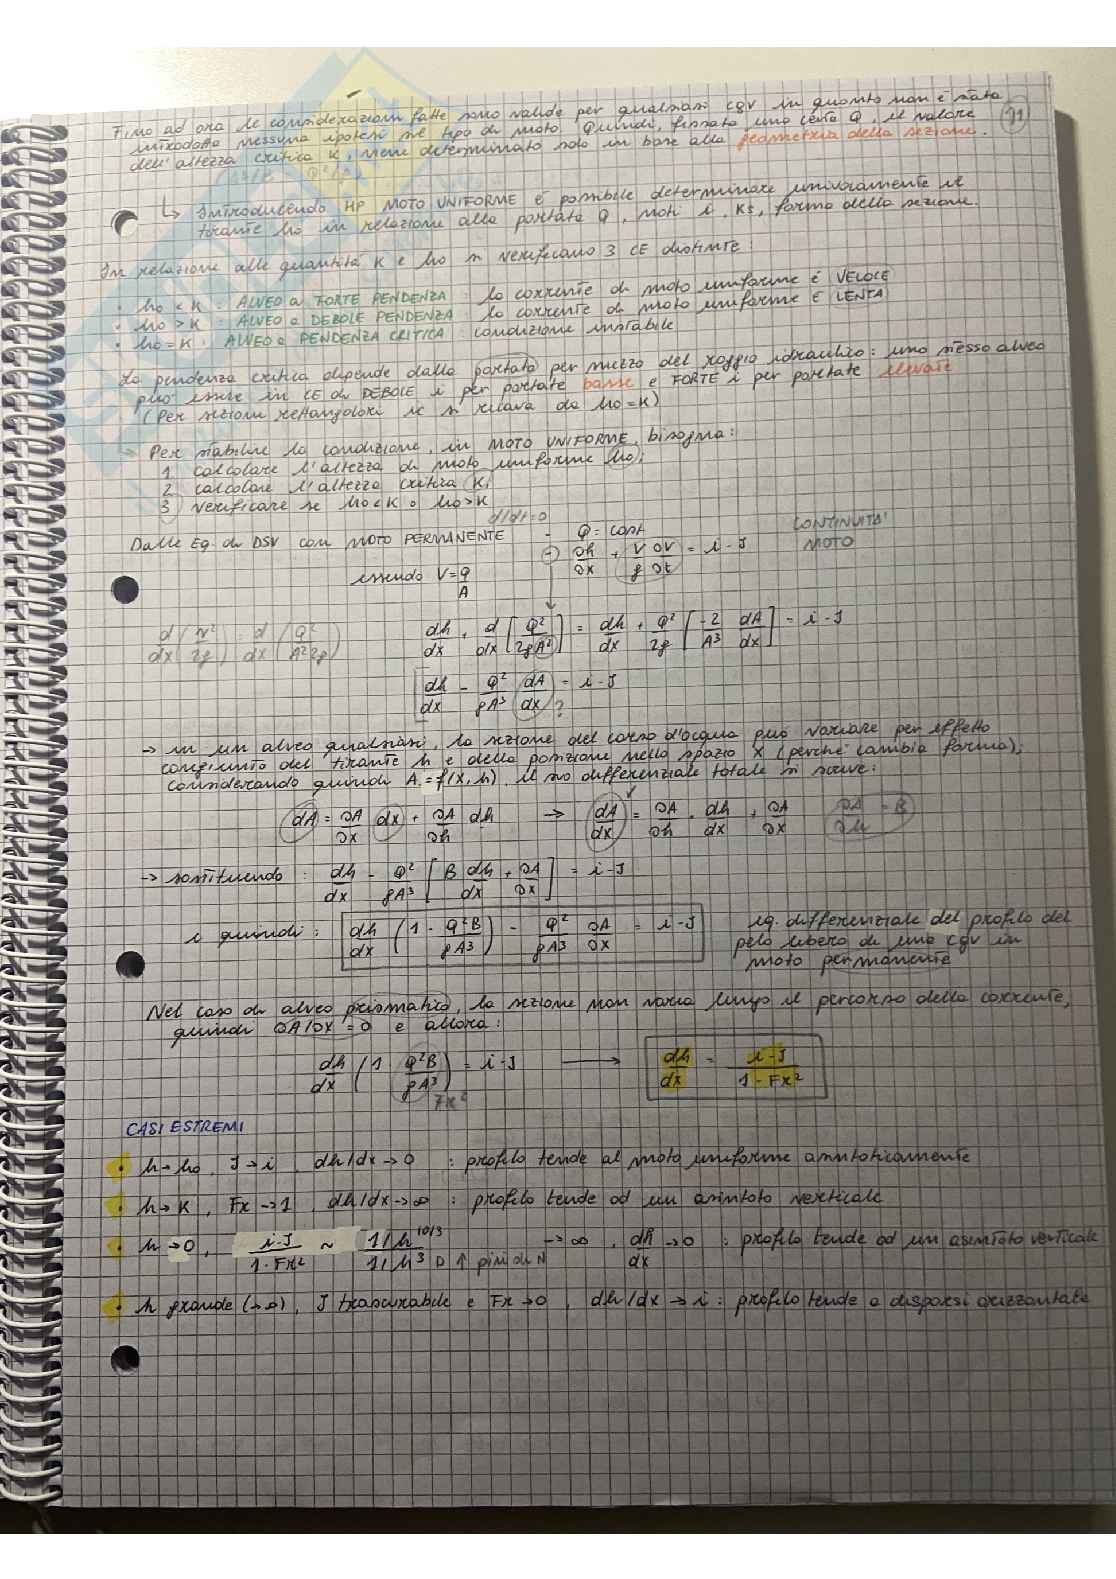 Fino ad ora le considerazioni fatte sono valide per qualsiasi cgv in quanto non è stata 91
introdotta nessuna ipotesi sul tipo di moto. Quindi, fissata una certa Q, il valore
dell'altezza critica K, viene determinato solo in base alla geometria della sezione.
↳ Introducendo HP MOTO UNIFORME è possibile determinare univocamente il
tirante ho in relazione alla portata Q, noti i, Ks, forma della sezione.
In relazione alle quantità K e ho si verificano 3 CE distinte:
• ho < K : ALVEO a FORTE PENDENZA : la corrente di moto uniforme è VELOCE
• ho > K : ALVEO a DEBOLE PENDENZA : la corrente di moto uniforme è LENTA
• ho = K : ALVEO a PENDENZA CRITICA : condizione instabile
La pendenza critica dipende dalla portata per mezzo del raggio idraulico: uno stesso alveo
può essere in CE di DEBOLE i per portate basse e FORTE i per portate elevate
(Per sezioni rettangolari ic si ricava da ho=K)
↳ Per stabilire la condizione, in MOTO UNIFORME, bisogna:
1 calcolare l'altezza di moto uniforme ho;
2 calcolare l'altezza critica K;
3 verificare se ho<K o ho>K
d/dt=0
Dalle Eq. di DSV con MOTO PERMANENTE - Q = cost CONTINUITA'
- ∂h/∂x + V/g ∂V/∂t = i-J MOTO
essendo V=Q/A
d/dx (v²/2g) = d/dx (Q²/A²2g) dh/dx + d/dx [Q²/2gA²] = dh/dx + Q²/2g [-2/A³ dA/dx] = i-J
dh/dx - Q²/gA³ dA/dx = i-J ?
→ in un alveo qualsiasi, la sezione del corso d'acqua può variare per effetto
congiunto del tirante h e della posizione nello spazio X (perchè cambia forma);
considerando quindi A=f(X,h), il suo differenziale totale si scrive:
dA = ∂A/∂x dx + ∂A/∂h dh → dA/dx = ∂A/∂h · dh/dx + ∂A/∂x ∂A/∂h = B
→ sostituendo : dh/dx - Q²/gA³ [B dh/dx + ∂A/∂x] = i-J
e quindi : dh/dx (1 - Q²B/gA³) - Q²/gA³ ∂A/∂x = i-J eq. differenziale del profilo del
pelo libero di una cgv in
moto permanente
Nel caso di alveo prismatico, la sezione non varia lungo il percorso della corrente,
quindi ∂A/∂X=0 e allora:
dh/dx (1 - Q²B/gA³) = i-J → dh/dx = i-J/1-Fr²
Fr²
CASI ESTREMI
• h→ho, J→i, dh/dx→0 : profilo tende al moto uniforme asintoticamente
• h→K, Fr→1, dh/dx→∞ : profilo tende ad un asintoto verticale
• h→0, i-J/1-Fr² ~ 1/h^10/3 / 1/h³ D ↑ più di N →∞, dh/dx→0 : profilo tende ad un asintoto verticale
• h grande (→∞), J trascurabile e Fr→0, dh/dx→i : profilo tende a disporsi orizzontale